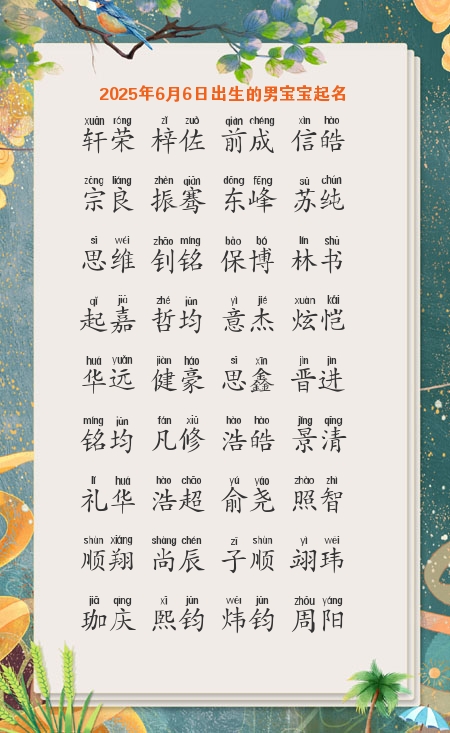 2025年6月6日出生的男宝宝起名
xuān róng zǐ zuǒ qián chéng xìn hào
轩荣 梓佐 前成 信皓
zōng liáng zhèn qiān dōng fēng sū chún
宗良 振骞 东峰 苏纯
sī wéi zhāo míng bǎo bó lín shū
思维 钊铭 保博 林书
qǐ jiā zhé jūn yì jié xuàn kǎi
起嘉 哲均 意杰 炫恺
huá yuǎn jiàn háo sī xīn jìn jìn
华远 健豪 思鑫 晋进
míng jūn fán xiū hào hào jǐng qīng
铭均 凡修 浩皓 景清
lǐ huá hào chāo yú yáo zhào zhì
礼华 浩超 俞尧 照智
shùn xiáng shàng chén zǐ shùn yì wěi
顺翔 尚辰 子顺 翊玮
jiā qìng xī jūn wěi jūn zhōu yáng
珈庆 熙钧 炜钧 周阳